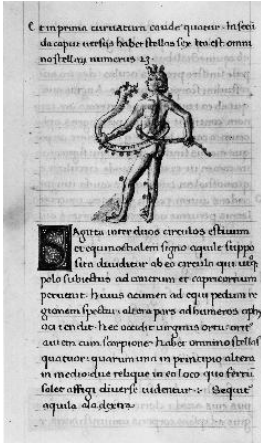 Et in prima curvatura caude quatuor. In secũ
da caput versus habet stellas sex. Ita est omni
no stellarũ numerus 23.
Sagitta inter duos circulos estivum
et equinoctialem signo aquile suppo
sita dividitur ab eo circulo qui utroq;
polo subiectus ad cancrum et capricornum
pervenit. huius acumen ad equi pedum re
gionem spectat. altera pars ad humeros oph
occidit virginis ortu. orit
autem cum scorpione. habet omnino stellas
quatuor: quarum una in principio altera
in medio. due relique in eo loco quo ferrũ
solet affigi diverse videntur: Sequit
aquila ala dextra